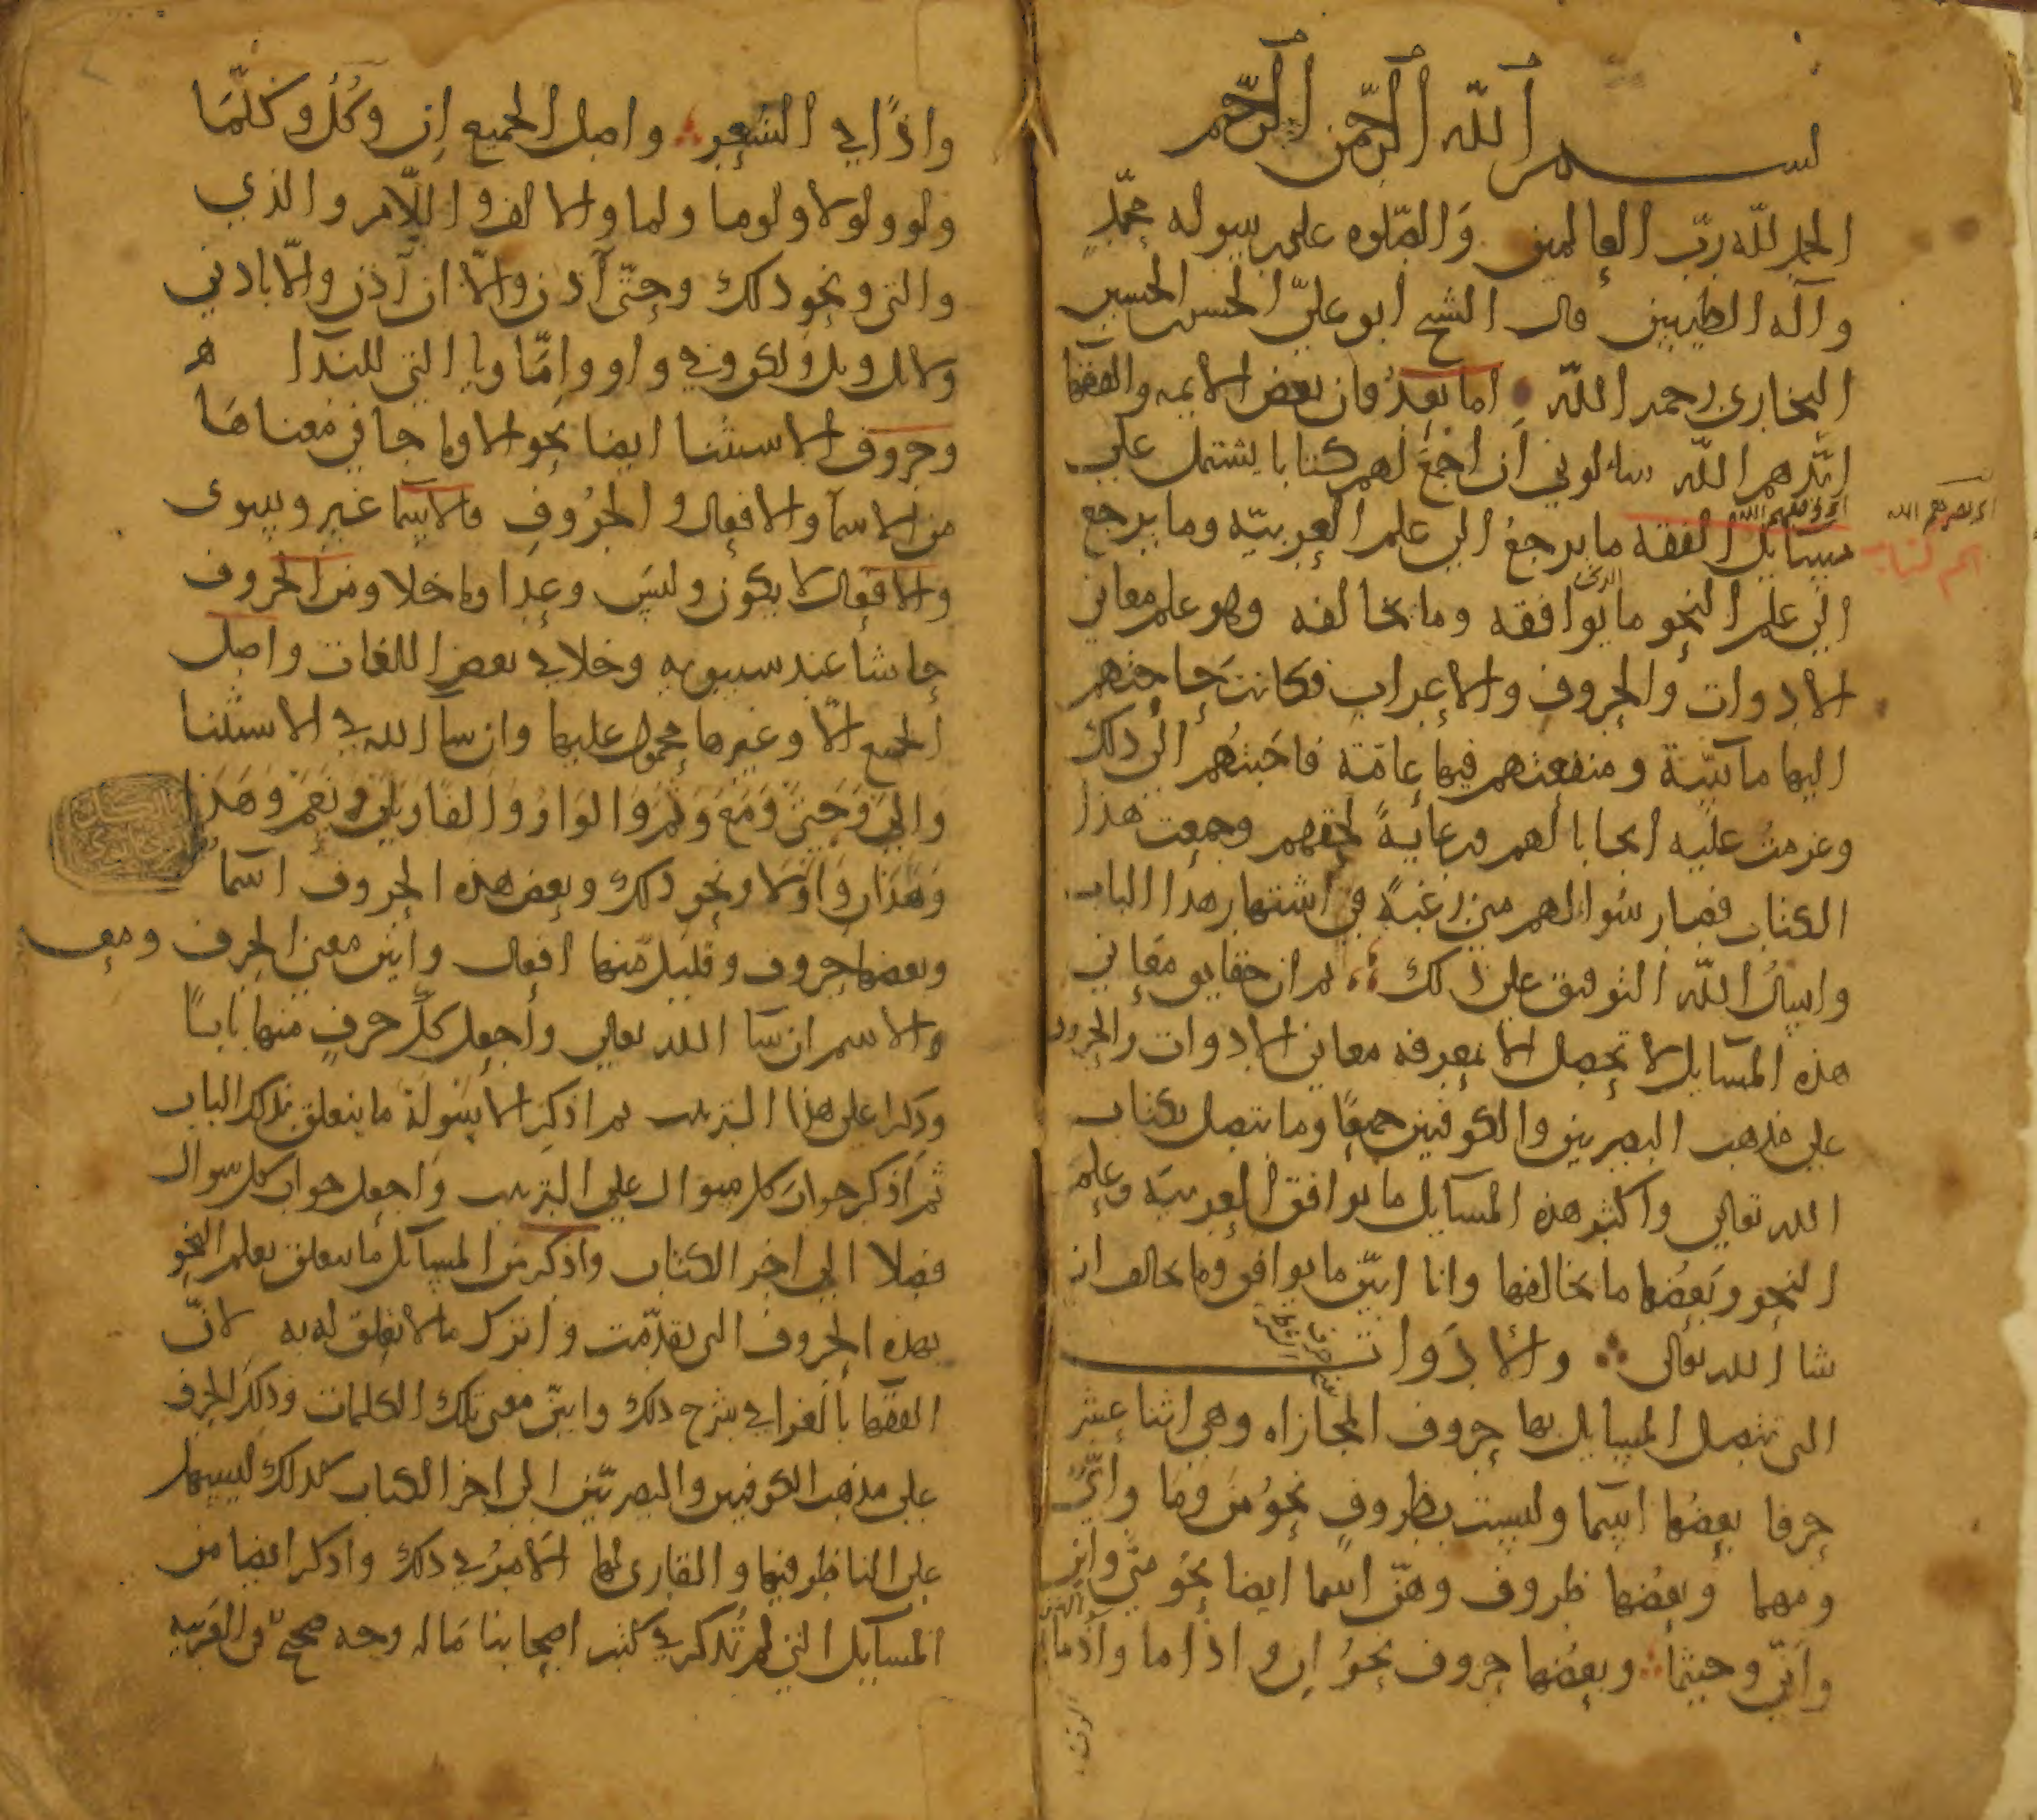 بسم الله الرحمن الرحيم
الحمد لله ربّ العالمين والصّلوه على رسوله محمّدٍ
وآله الطيبين قال الشيخ ابو عليّ الحسن الحسين
البخارى رحمه الله اما بعدُ فان بعض الايمه والفقها
ايّدهم الله سالوني أن اجمعَ لهم كتابا يشتمل على
مسايل الفقه ما يرجعُ الى علم العربيّه وما يرجع
الى علم النحو ما يوافقه وما يخالفه وهو علم معاني
الادوات والحروف والاعراب فكانت حاجتهم
اليها ماسّة ومنفعتهم فيها عامّة فاجبتُهم الى ذلك
وعزمتُ عليه ايجابا لهم ورعايةً لحقهم وجمعت هذا
الكتاب فصار سُوالهم من رغبةً في اشتهار هذا الباب
واسالُ اللّه التوفيق على ذلك ثم ان حقايق معاني
هذه المسايل لا تحصل الا بمعرفه معاني الادوات والحروف
على مذهب البصريين والكوفيين جميعًا وما يتصل بكتاب
الله تعالى واكثر هذه المسايل ما يوافق العربيّه وعلم
النحو وبعضُها ما يخالفها وانا ابيّن ما يوافق وما يخالف ان
شا الله تعالى والادَوات
التى تتصل المسايل بها حروف المجازاه وهى اثنا عشر
حرفا بعضُها اسما وليست بظروفٍ نحوُ من وما وأىّ
ومهما وبعضُها ظروف وهنّ اسما ايضا نحوُ متى واين
وأنّى وحيثما وبعضُها حروف نحوُ اِن واذاما وأذما
واذًا في الشعر واصل الجميع اِن وكُلّ وكُلّمَا
ولو ولولا ولوما ولما والالف واللّام والذي
والتى ونحو ذلك وحتّى آذن والّا ان آذن والّا باذني
ولا بل وبل ولكن وفي واو وامّا ويا التى للندآ
وحروف الاستثنا ايضا نحو الا وما جا في معناها
من الاسمآ والافعال والحروف فالاسما غير وسوى
والافعال لا يكون وليسَ وعدا وما خلا ومن الحروف
حاشا عند سيبويه وخلا في بعض اللغات واصل
الجميع الّا وغيرها محمول عليها وان سآ الله في الاستثنا
والى وحتى ومع وثم والواو والفا وبلى ونعم وهذا
وهذان واولا ونحو ذلك وبعض هذه الحروف اسما
وبعضها حروف وقليل منها افعال وابيّن معنى الحرف ومعنى
والاسم ان سآ الله تعالى وأجعل كلّ حرفٍ منها بابًا
وذكرا على هذا الترتيب ثم اذكر الاسولة ما يتعلق بذلك الباب
ثم اذكر جواب كل سوال على الترتيب واجعل جواب كل سوال
فصلا الى اخر الكتاب واذكر من المسايل ما يتعلق بعلم النحو
بهذه الحروف التى تقدّمت واترك ما لا تعلق له به لانّ
الفقها بالغوا في شرح ذلك وابيّن معنى تلك الكلمات وذلك الحرف
على مذهب الكوفيين والبصريّين الى اخر الكتاب كذلك ليسهل
على الناظر فيها والقارى لها الامرُ في ذلك واذكر ايضا من
المسايل التي لم تُذكر في كتب اصحابنا مَا له وجه صحيحٌ في العربيه